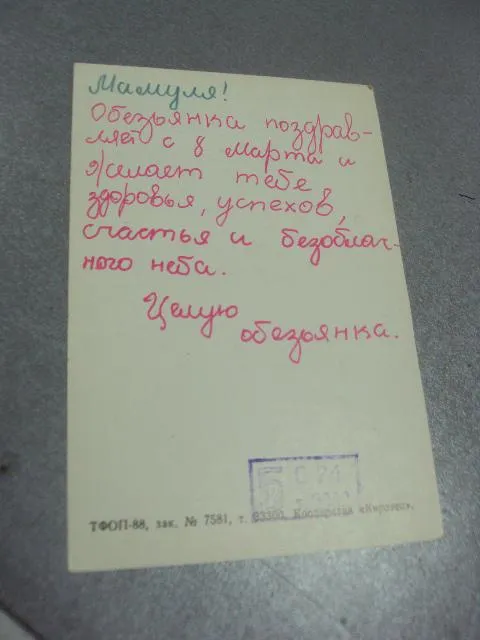 Мамуля!
Обезьянка поздрав-
ляет с 8 Марта и
желает тебе
здоровья, успехов,
счастья и безоблач-
ного неба.
Целую
обезьянка.
С 74
ТФОП-88, зак. № 7581, т. 93300,